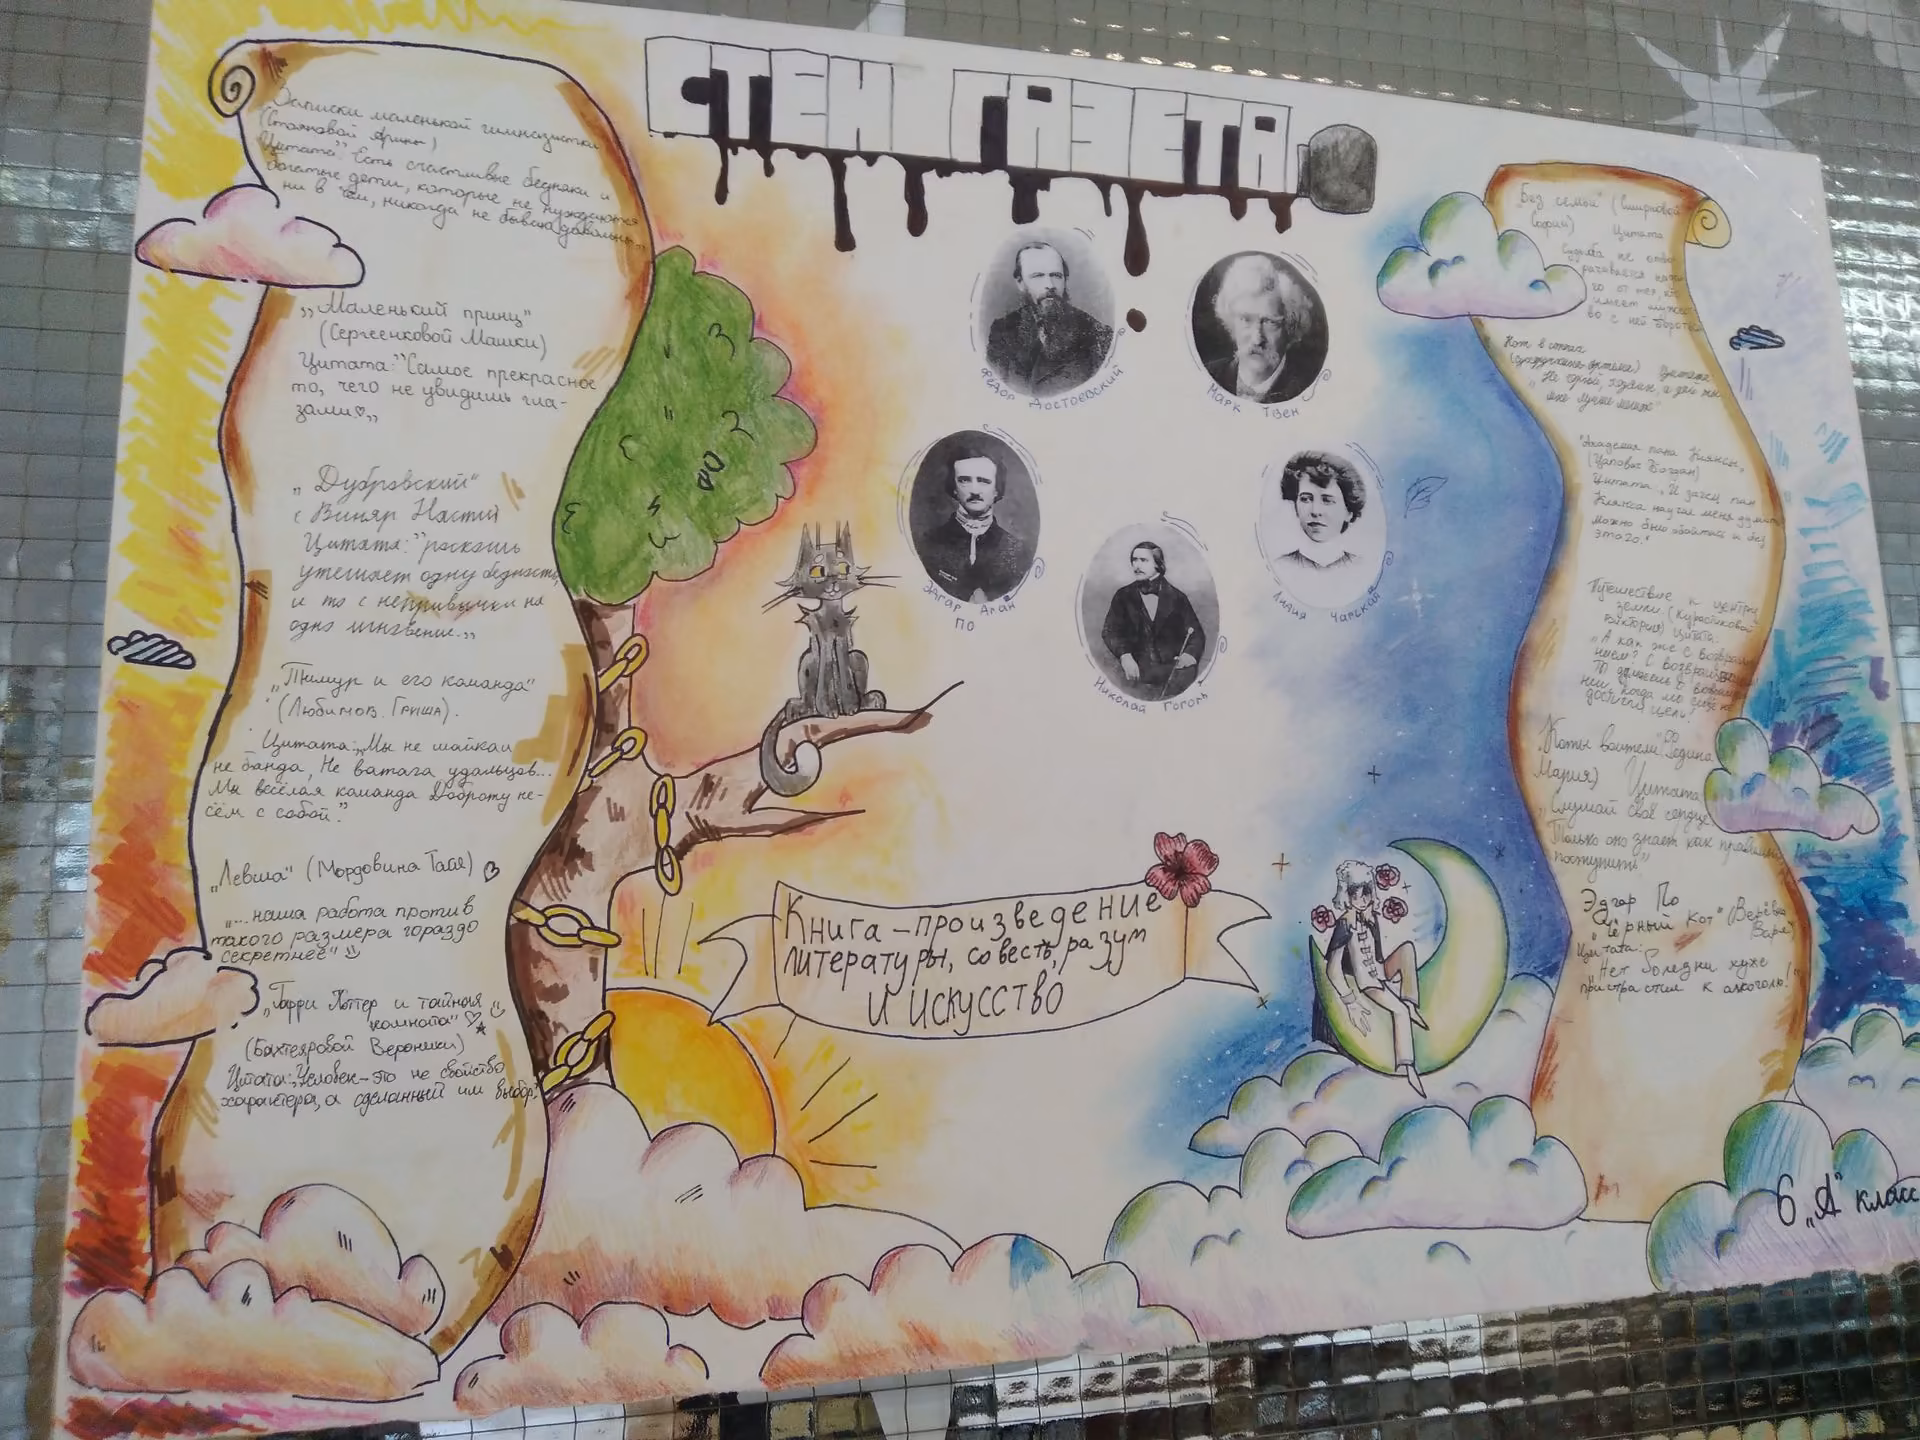 СТЕН ГАЗЕТА
Записки маленькой гимназистки
(Стояновой Арины)
Цитата:" Есть счастливые бедняки и
богатые дети, которые не нуждаются
ни в чём, никогда не бывши довольны"
„Маленький принц"
(Сергеенковой Машки)
Цитата:"Самое прекрасное
то, чего не увидишь гла-
зами♡„
„Дубровский"
с Виняр Настий
Цитата:"роскошь
утешает одну бедность,
и то с непривычки на
одно мгновение.„
„Тимур и его команда"
(Любимов. Гриша).
Цитата:„Мы не шайка и
не банда, Не ватага удальцов...
Мы весёлая команда Доброту не-
сём с собой".
„Левша" (Мордовина Тая) ♡
„...наша работа против
такого размера гораздо
секретнее"
„Гарри Поттер и тайная
комната" ♡
(Бахтеяровой Вероники)
Цитата:„Человек-это не свойство
характера, а сделанный им выбор."
Фёдор Достоевский
Марк Твен
Эдгар Алан
ПО
Лидия Чарская
Николай Гоголь
Книга-произведение
литературы, совесть, разум
и искусство
„Без семьи" (Смирновой
Софии) Цитата
Судьба не отво-
рачивается надол-
го от тех, кто
имеет мужест-
во с ней бороться
Кот в сапогах
Цитата
"Академия пана Кляксы„
(Цапович Богдан)
Цитата:„И зачем пан
Клякса научил меня думать
можно было обойтись и без
этого."
Путешествие к центру
земли. (
Виктория) Цитата:
„А как же с возвраще-
нием? С возвращением?
То думаешь о возвраще-
нии, когда мы ещё не
достигли цели!
„Коты воители" Родина
Мария) Цитата
„Слушай своё сердце,
Только оно знает как правильно
поступить"
Эдгар По
"Чёрный кот" (Верёвка
Варя)
Цитата:
„Нет болезни хуже
пристрастия к алкоголю!"
6 „А" класс